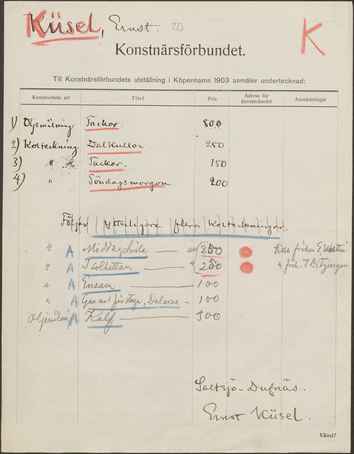 Küsel, Ernst. 20
K
Konstnärsförbundet.
Till Konstnärsförbundets utställning i Köpenhamn 1903 anmäler undertecknad:
Konstverkets art Titel Pris Adress för återsändandet Anmärkningar
1) Oljemålning Tackor 800
2) Kolteckning Dalkullor 250
3) " Tackor. 150
4) " Söndagsmorgon 200
Följer ytterligare fem kolteckningar.
" A Middagshvila 200
" A Trollhättan " 200
" A Ensam 100
" A Dalarne 100
A Kalf 300
Saltsjö-Dufnäs.
Ernst Küsel.
Vänd!